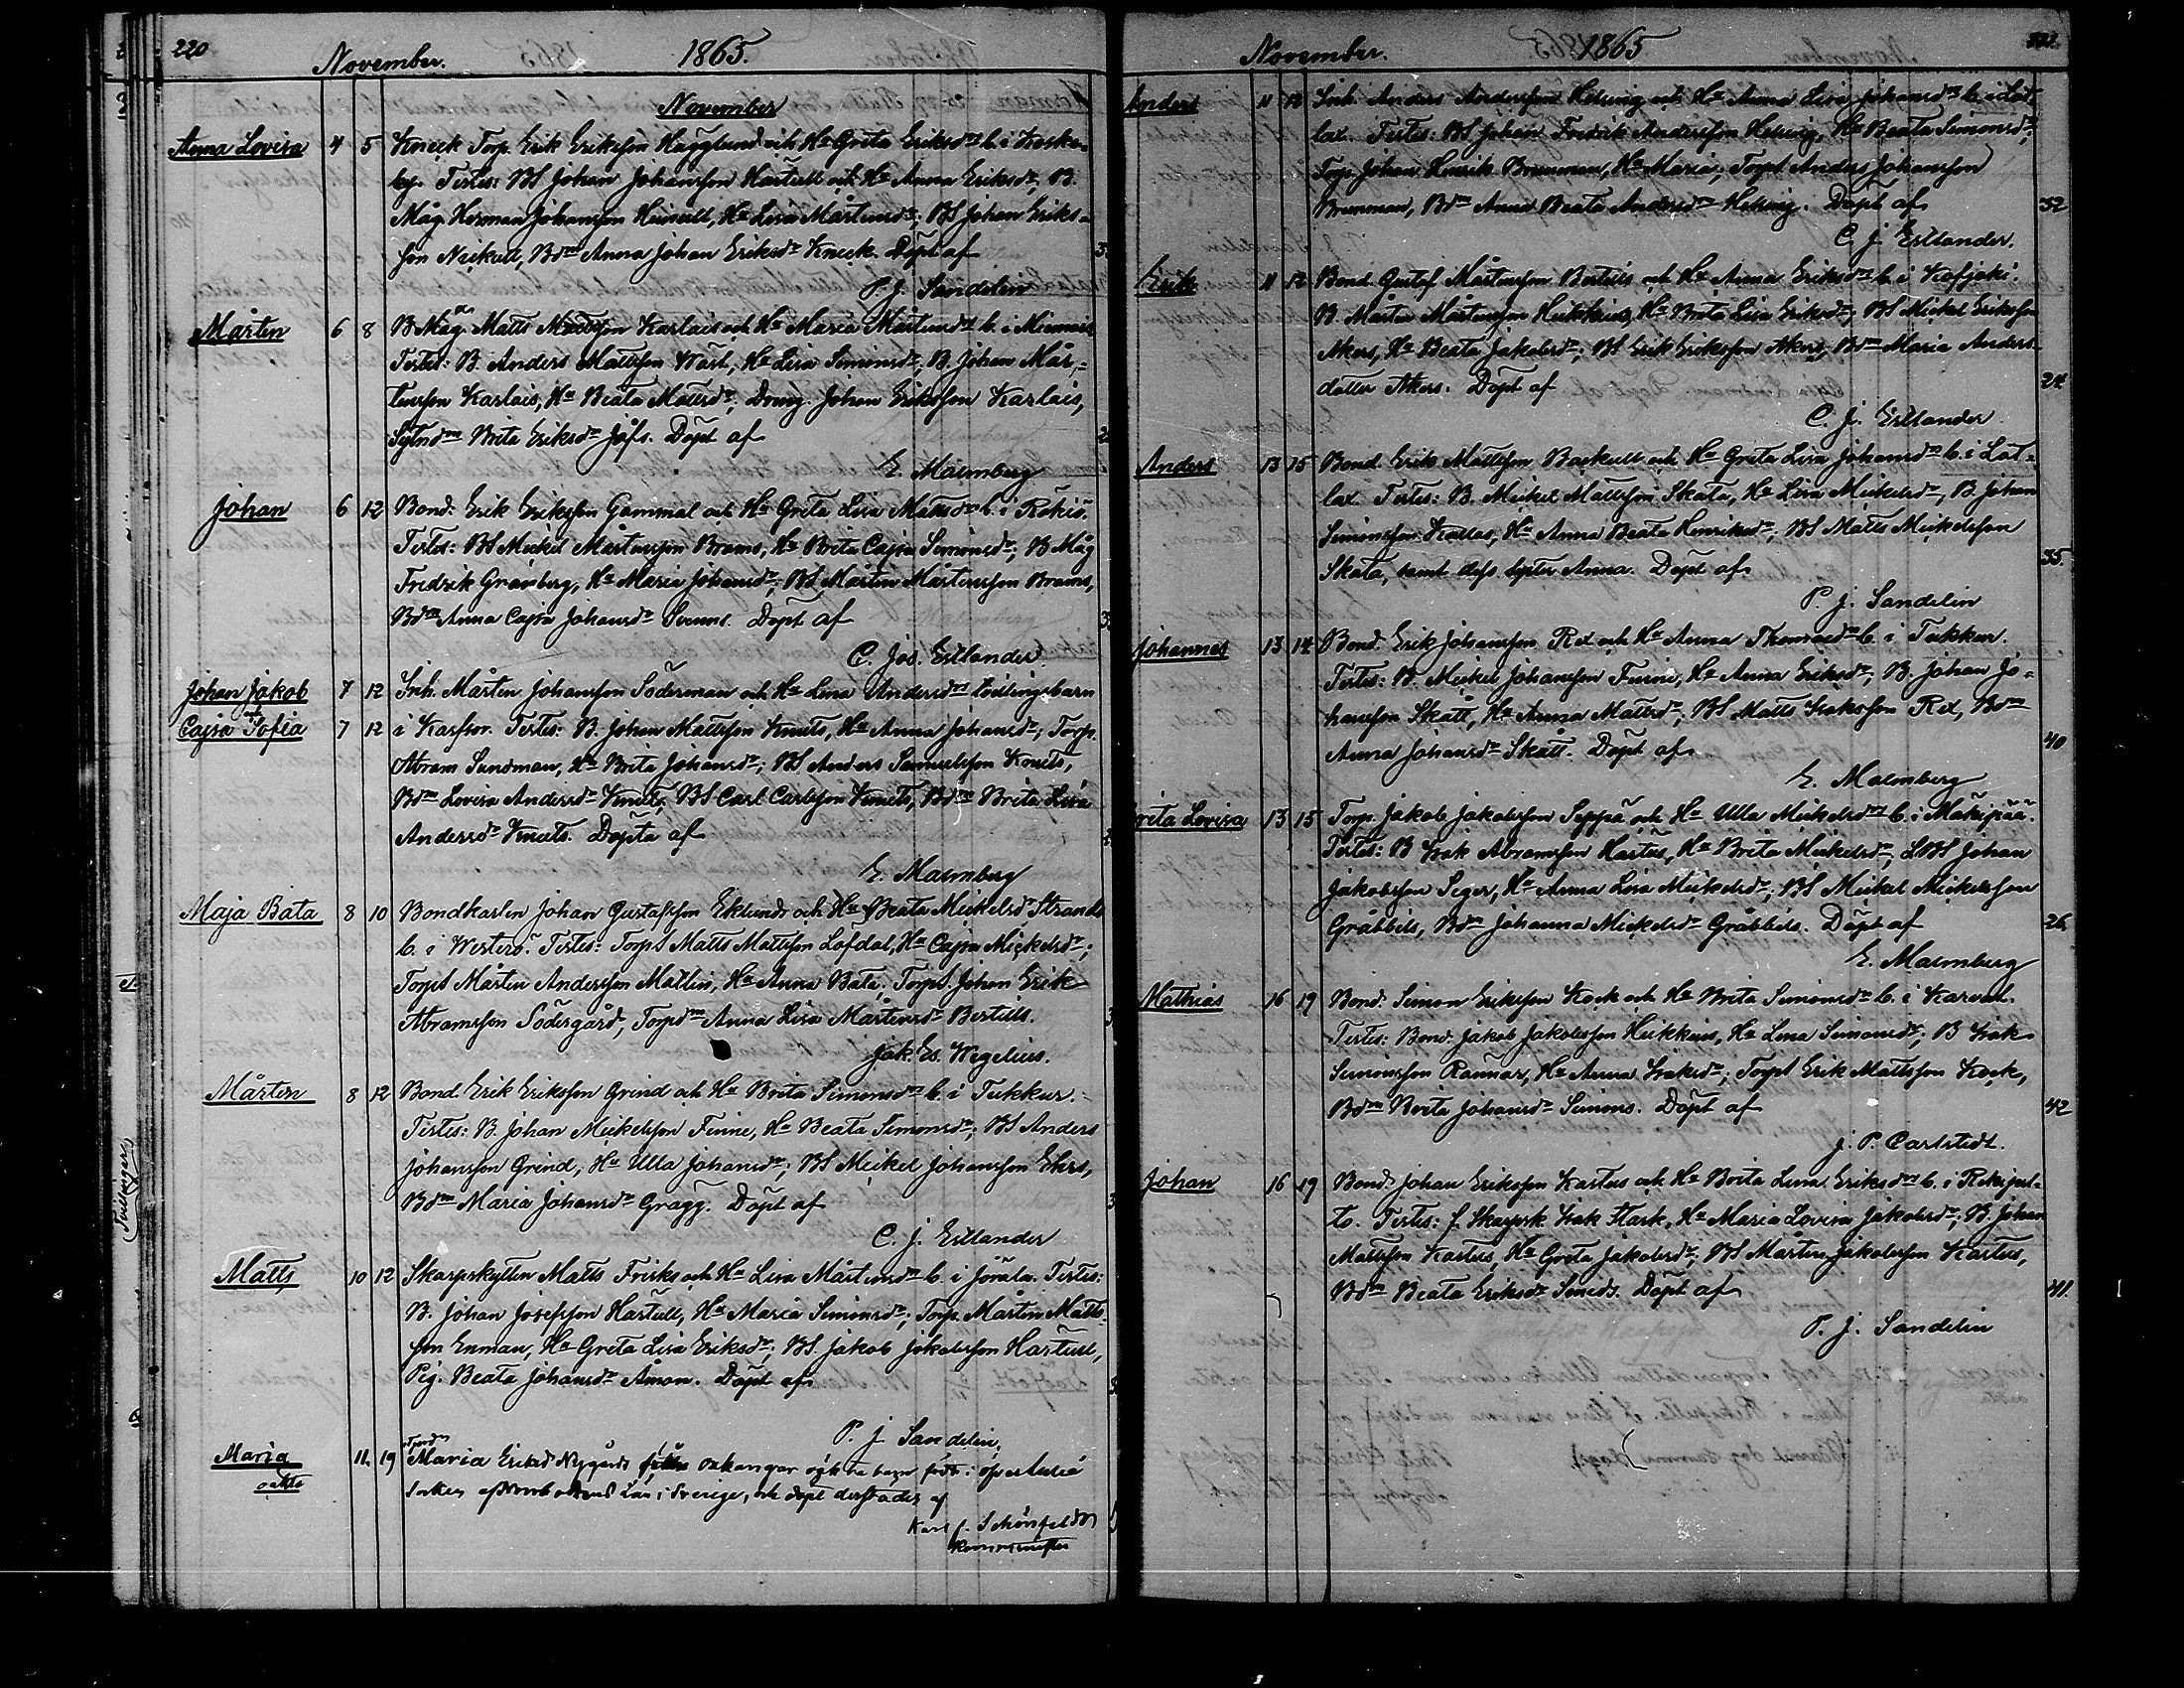 220 November. 1865.
November
Anna Lovisa 4 5 Kneck Torp. Erik Eriksson Hägglund och Hu Greta Eriksdr b. i Koske-
by. Testes: BS Johan Johansson Härtull och Hu Anna Eriksdr, B.
Måg Herman Johansson Heinull, Hu Lisa Mårtensdr; BS Johan Eriks-
son Nickull, Bdr Anna Johan Eriksdr Kneck. Döpt af
P. J. Sandelin
Mårten 6 8 BMåg. Matts Mattsson Karlais och Hu Maria Mårtensdr b. i Miemois
Testes: B. Anders Mattsson Wäst, Hu Lisa Simonsdr, B. Johan Mår-
tensson Karlais, Hu Beata Mattsdr; Dräng. Johan Eriksson Karlais,
Sytndr Brita Eriksdr Jåfs. Döpt af
E. Malmberg
Johan 6 12 Bond. Erik Eriksson Gammal och Hu Greta Lisa Mattsdr b. i Rökiö.
Testes: BS Mickel Mårtensson Brams, Hu Brita Cajsa Simonsdr; B Måg
Fredrik Granberg, Hu Maria Johansdr; BS Mårten Mårtensson Brams,
Bdr Anna Cajsa Johansdr Svenns. Döpt af
C. Jos. Estlander
Johan Jakob 7 12 Inh. Mårten Johansson Söderman och Hu Lena Andersdr tvillingebarn
och
Cajsa Sofia 7 12 i Karflor. Testes: B. Johan Mattsson Knuts, Hu Anna Johansdr; Torp.
Abram Sundman, Hu Brita Johansdr; BS Anders Samuelsson Knuts,
Bdr Lovisa Andersdr Knuts, BS Carl Carlsson Knuts, Bdr Brita Lisa
Andersdr Knuts. Döpta af
E. Malmberg
Maja Bata 8 10 Bondkarlen Johan Gustafsson Eklund och Hu Beata Mickelsdr Strands
b. i Westerö. Testes: Torpt Matts Mattsson Löfdal, Hu Cajsa Mickelsdr;
Torpt Mårten Andersson Mattlin, Hu Anna Bata; Torpt. Johan Erik
Abramsson Södergård, Torpdr Anna Lisa Mårtensdr Bertills.
Jak. Es. Wegelius.
Mårten 8 12 Bond. Erik Eriksson Grind och Hu Brita Simonsdr b. i Tukkur.
Testes: B. Johan Mickelsson Finne, Hu Beata Simonsdr; BS Anders
Johansson Grind, Hu Ulla Johansdr; BS Mickel Johansson Ehrs,
Bdr Maria Johansdr Gragg. Döpt af
C. J. Estlander
Matts 10 12 Skarpskytten Matts Frisks och Hu Lisa Mårtensdr b. i Jörala. Testes:
B. Johan Josefsson Härtull, Hu Maria Simonsdr; Torp. Mårten Matts-
son Enman, Hu Greta Lisa Eriksdr; BS. Jakob Jakobsson Härtull,
Pig. Beata Johansdr Åman. Döpt af
P. J. Sandelin.
Maria 11. 19 Maria Eriksd Nygårds oäkta barn födt i
oäkta Socken af Norrbottens Län i Sverige, och döpt derstädes af
Karl J. Schönfeldt
Komminister
November. 1865 221.
Anders 11 12 Inh. Anders Andersson Helsing och Hu Anna Lisa Johansdr b. i Lot-
lax. Testes: BS Johan Fredrik Andersson Helsing, Hu Beata Simonsdr;
Torp. Johan Henrik Brunnman, Hu Maria; Torpt Anders Johansson
Brunnman, Bdr Anna Beata Andersdr Helsing. Döpt af 32
C. J. Estlander.
Erik 11 12 Bond. Gustaf Mårtensson Bertills och Hu Anna Eriksdr b. i Kofjoki.
B. Mårten Mårtensson Heikkius, Hu Brita Lisa Eriksdr; BS Mickel Eriksson
Akers, Hu Beata Jakobsdr; BS Erik Eriksson Akers, Bdr Maria Anders-
dotter Akers. Döpt af 24.
C. J. Estlander
Anders 13 15 Bond. Erik Mattsson Backull och Hu Greta Lisa Johansdr b. i Lot-
lax. Testes: B. Mickel Mattsson Skata, Hu Lisa Mickelsdr, B. Johan
Simonsson Kallas, Hu Anna Beata Henriksdr; BS Matts Mickelsson
Skata, samt dess syster Anna. Döpt af 35.
P. J. Sandelin
Johannes 13 14 Bond. Erik Johansson Rex och Hu Anna Thomasdr b. i Tukkur.
Testes: B. Mickel Johansson Finne, Hu Anna Eriksdr; B. Johan Jo-
hansson Skatt, Hu Anna Mattsdr; BS Matts Isaksson Rex, Bdr
Anna Johansdr Skatt. Döpt af 40
E. Malmberg
rita Lovisa 13 15 Torp. Jakob Jakobsson Seppä och Hu Ulla Mickelsdr b. i Mäkipää.
Testes: B Isak Abramsson Härtus, Hu Brita Mickelsdr, LBS Johan
Jakobsson Seger, Hu Anna Lisa Mickelsdr; BS Mickel Mickelsson
Gråbbils, Bdr Johanna Mickelsdr Gråbbils. Döpt af 26
E. Malmberg
Mathias 16 19 Bond. Simon Eriksson Kock och Hu Brita Simonsdr b. i Karvat.
Testes: Bond. Jakob Jakobsson Heikkius, Hu Lena Simonsdr; B Isak
Simonsson Rannar, Hu Anna Isaksdr; Torpt Erik Mattsson Kock,
Bdr Brita Johansdr Simons. Döpt af 42
J. P. Carlstedt.
Johan 16 19 Bond. Johan Eriksson Kartus och Hu Brita Lena Eriksdr b. i Rekipel-
to. Testes: f. Skarpsk Isak Stark, Hu Maria Lovisa Jakobsdr; B. Johan
Mattsson Kartus, Hu Greta Jakobsdr; BS Mårten Jakobsson Kartus,
Bdr Beata Eriksdr Smeds. Döpt af 41.
P. J. Sandelin